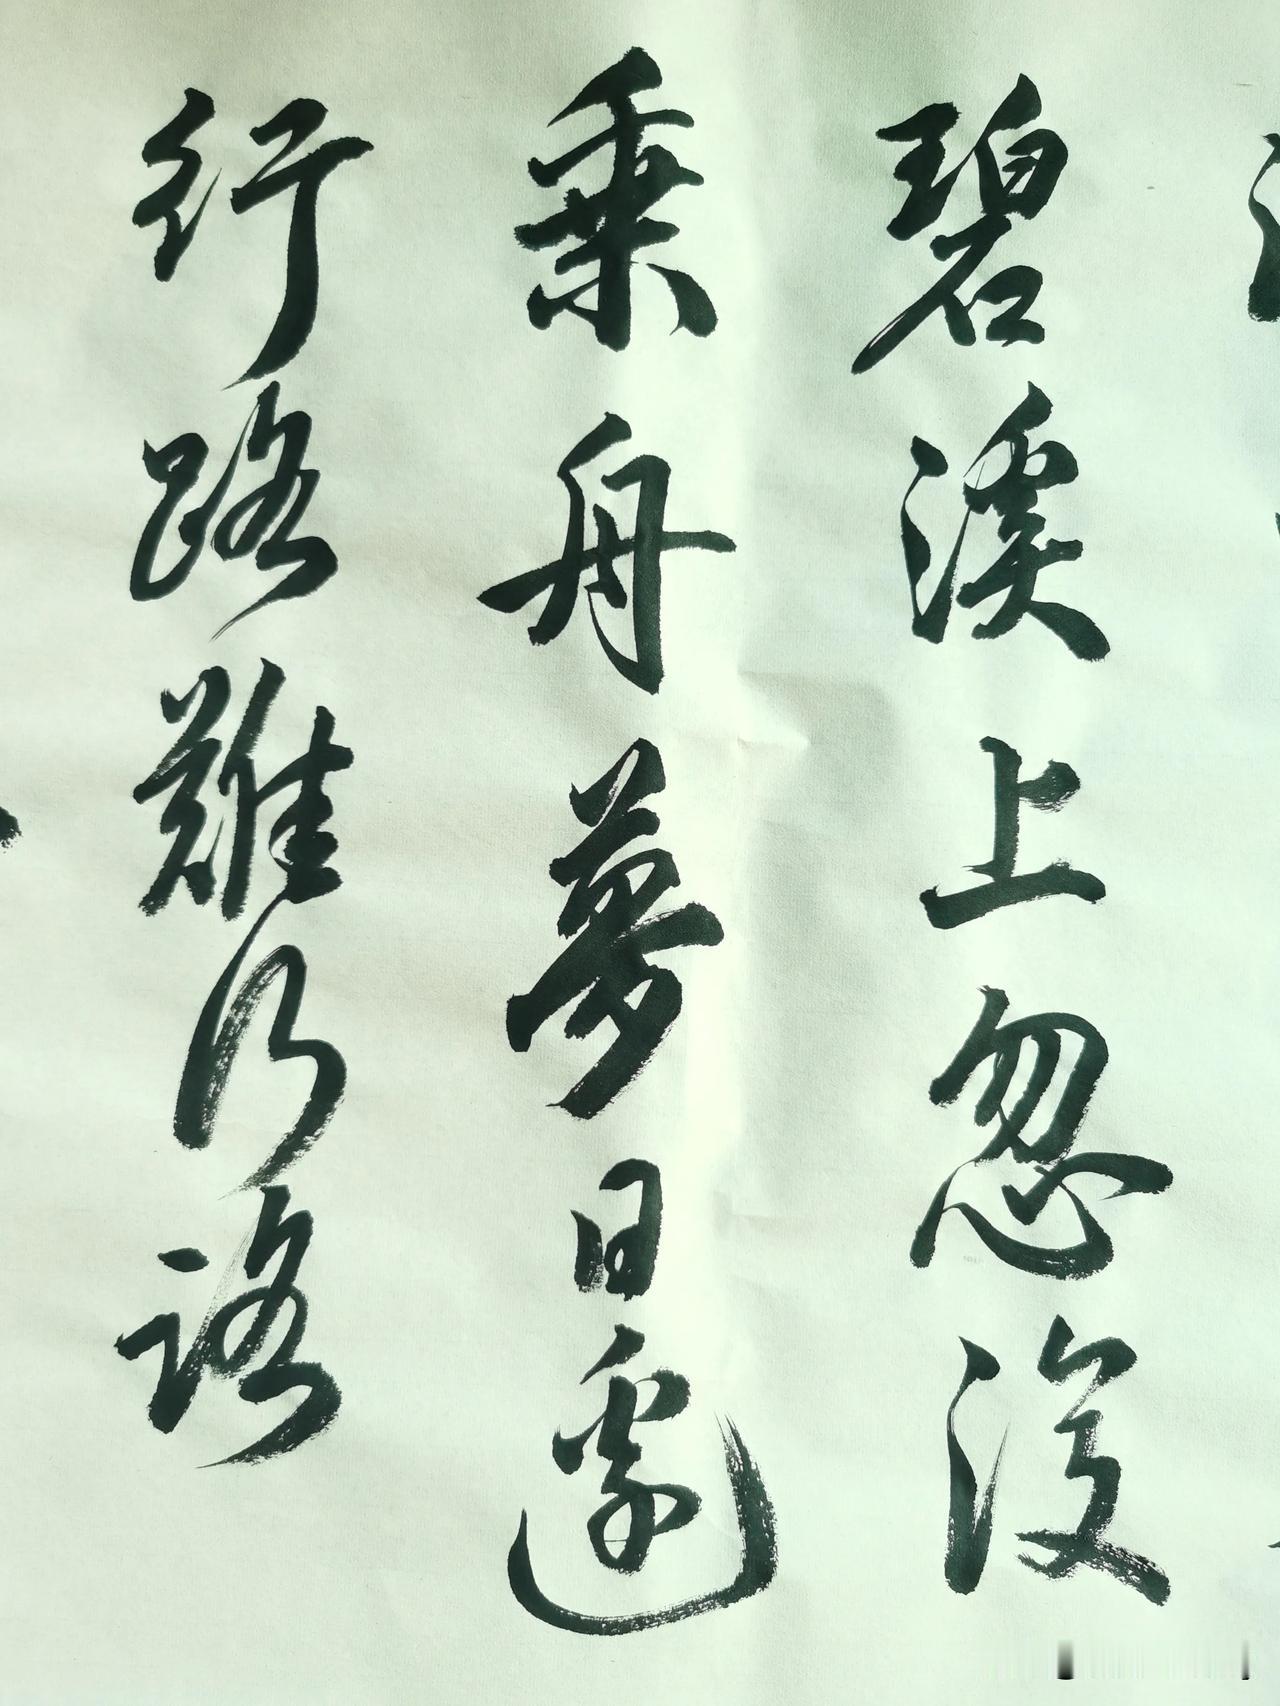 碧溪上忽復
乘舟夢日邊
行路難行路